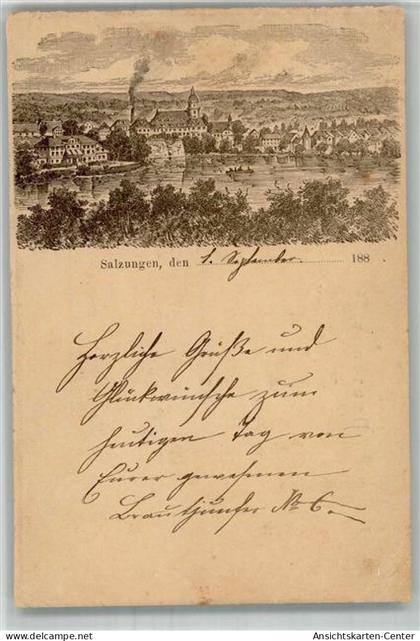 Salzungen, den 1. September. 188
Herzliche Grüße und
Glückwünsche zum
heutigen Tag von
Eurer gewesenen
Brautjunfer No 6.
www.ansichtskarten-center.de Ansichtskarten-Center